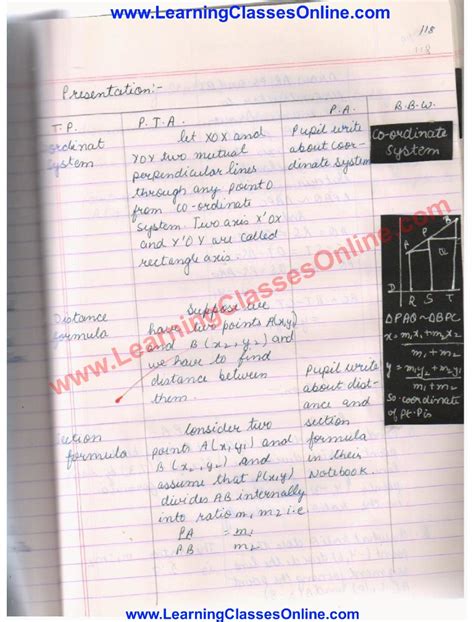 www.LearningClassesOnline.com
118
Presentation:-
T.P.
P.T.A.
P.A.
B.B.W.
ordinat
System
let XOX and
YOY two mutual
perpendicular lines
through any point O
from co-ordinate
System. Two axis X'OX
and X'OX are called
rectangle axis.
Pupil write
about coor-
dinate system
Co-ordinate
System
Distance
formula
Suppose we
have two points A(x,y)
and B(x2, y2) and
we have to find
distance between
them.
Pupil write
about dist-
ance and
section
formula
in their
Notebook.
ection
formula
Consider two
points A(x, y1) and
B(x2, y2) and
assume that P(x,y)
divides AB internally
into ratio m1 m2 i.e
PA = m1
PB m2
A P B
Q
D R S T
ΔPAQ ~ ΔBPC
x = m1x1 + m2x2
m1 + m2
y = m1y2 + m2y1
m1 + m2
So co-ordinate
of pt. P is
www.LearningClassesOnline.com
www.LearningClassesOnline.com